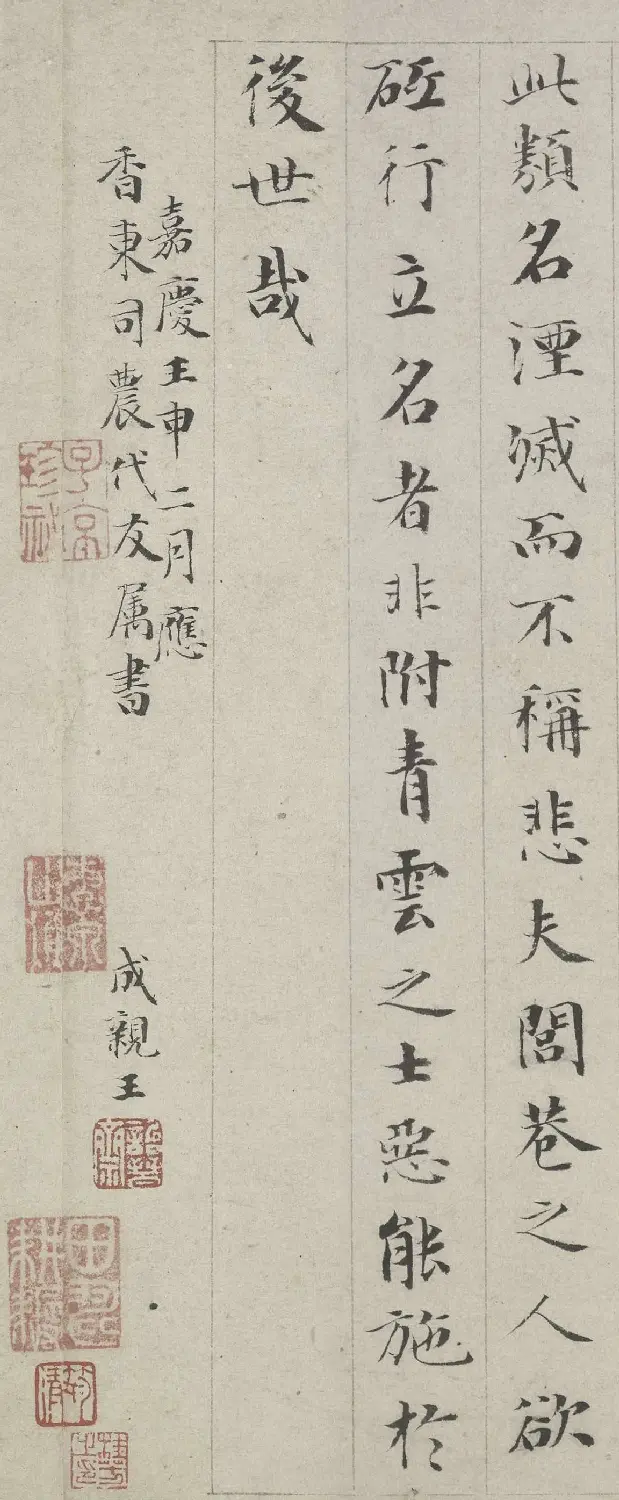 此類名湮滅而不稱悲夫閭巷之人欲
砥行立名者非附青雲之士惡能施於
後世哉
嘉慶壬申二月應
香東司農代友属書
成親王
詒晉齋
子京珍祕